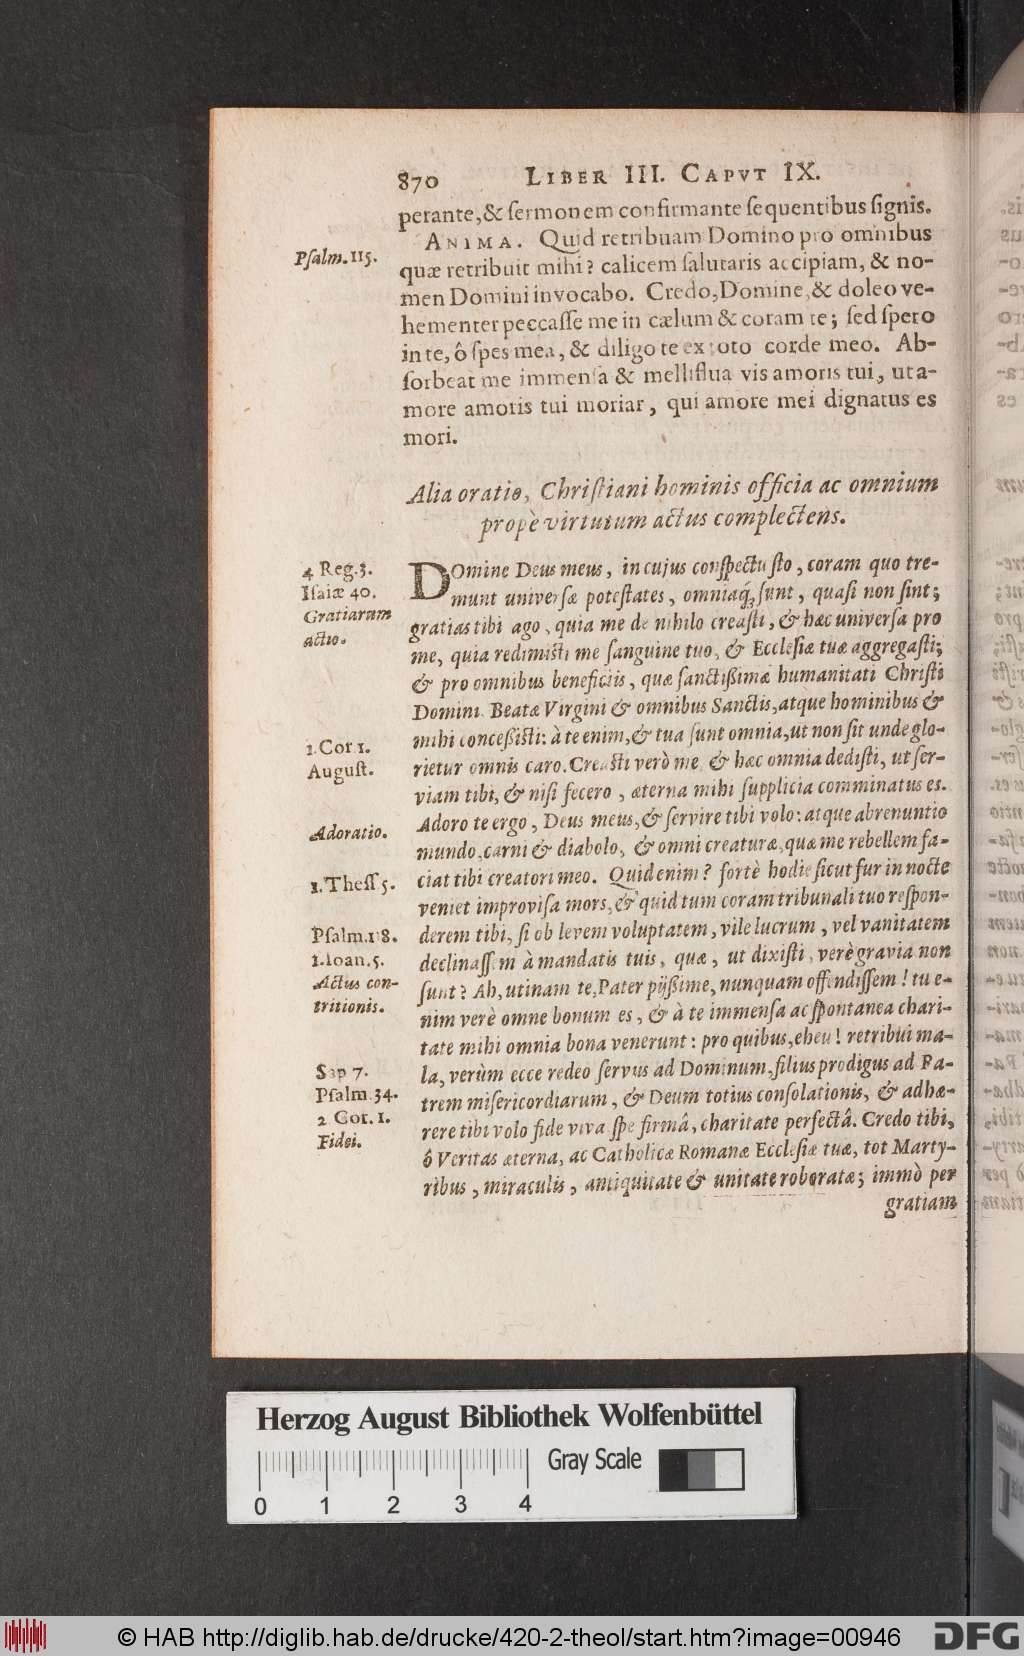 870 LIBER III. CAPVT IX.
perante, & ſermonem confirmante ſequentibus ſignis.
ANIMA. Quid retribuam Domino pro omnibus
Pſalm. 115.
quæ retribuit mihi? calicem ſalutaris accipiam, & no-
men Domini invocabo. Credo, Domine, & doleo ve-
hementer peccaſſe me in cælum & coram te; ſed ſpero
in te, ô ſpes mea, & diligo te ex toto corde meo. Ab-
ſorbeat me immenſa & melliflua vis amoris tui, ut a-
more amoris tui moriar, qui amore mei dignatus es
mori.
Alia oratio, Chriſtiani hominis officia ac omnium
propè virtutum actus complectens.
4 Reg. 3.
Iſaiæ 40.
Gratiarum
actio.
DOmine Deus meus, in cujus conſpectu ſto, coram quo tre-
munt univerſæ poteſtates, omniaq́; ſunt, quaſi non ſint;
gratias tibi ago, quia me de nihilo creaſti, & hæc univerſa pro
me, quia redimiſti me ſanguine tuo, & Eccleſiæ tuæ aggregaſti;
& pro omnibus beneficiis, quæ ſanctißimæ humanitati Chriſti
Domini Beatæ Virgini & omnibus Sanctis, atque hominibus &
mihi conceßiſti: à te enim, & tua ſunt omnia, ut non ſit unde glo-
1. Cor 1.
Auguſt.
rietur omnis caro. Creaſti verò me & hæc omnia dediſti, ut ſer-
viam tibi, & niſi fecero, æterna mihi ſupplicia comminatus es.
Adoratio.
Adoro te ergo, Deus meus, & ſervire tibi volo: atque abrenuntio
mundo, carni & diabolo, & omni creaturæ, quæ me rebellem fa-
1. Theſſ 5.
ciat tibi creatori meo. Quid enim? fortè hodie ſicut fur in nocte
veniet improviſa mors, & quid tum coram tribunali tuo reſpon-
Pſalm. 118.
1. Ioan. 5.
Actus con-
tritionis.
derem tibi, ſi ob levem voluptatem, vile lucrum, vel vanitatem
declinaſſem à mandatis tuis, quæ, ut dixiſti, verè gravia non
ſunt? Ah, utinam te, Pater pijßime, nunquam offendiſſem! tu e-
nim verè omne bonum es, & à te immenſa ac ſpontanea chari-
tate mihi omnia bona venerunt: pro quibus, eheu! retribui ma-
Sap 7.
Pſalm. 34.
2 Cor. 1.
Fidei.
la, verùm ecce redeo ſervus ad Dominum, filius prodigus ad Pa-
trem miſericordiarum, & Deum totius conſolationis, & adhæ-
rere tibi volo fide viva ſpe firmâ, charitate perfectâ. Credo tibi,
ô Veritas æterna, ac Catholicæ Romanæ Eccleſiæ tuæ, tot Marty-
ribus, miraculis, antiquitate & unitate roboratæ; immò per
gratiam
Herzog August Bibliothek Wolfenbüttel
Gray Scale
0 1 2 3 4
© HAB http://diglib.hab.de/drucke/420-2-theol/start.htm?image=00946
DFG